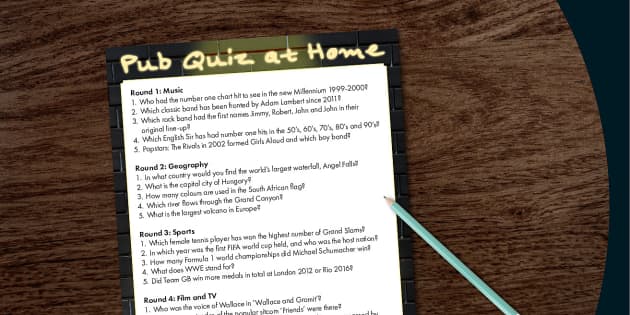 Pub Quiz at Home
Round 1: Music
1. Who had the number one chart hit to see in the new Millennium 1999-2000?
2. Which classic band has been fronted by Adam Lambert since 2011?
3. Which rock band had the first names Jimmy, Robert, John and John in their
original line-up?
4. Which English Sir has had number one hits in the 50's, 60's, 70's, 80's and 90's?
5. Popstars: The Rivals in 2002 formed Girls Aloud and which boy band?
Round 2: Geography
1. In what country would you find the world's largest waterfall, Angel Falls?
2. What is the capital city of Hungary?
3. How many colours are used in the South African flag?
4. Which river flows through the Grand Canyon?
5. What is the largest volcano in Europe?
Round 3: Sports
1. Which female tennis player has won the highest number of Grand Slams?
2. In which year was the first FIFA world cup held, and who was the host nation?
3. How many Formula 1 world championships did Michael Schumacher win?
4. What does WWE stand for?
5. Did Team GB win more medals in total at London 2012 or Rio 2016?
Round 4: Film and TV
1. Who was the voice of Wallace in 'Wallace and Gromit'?
of the popular sitcom 'Friends' were there?